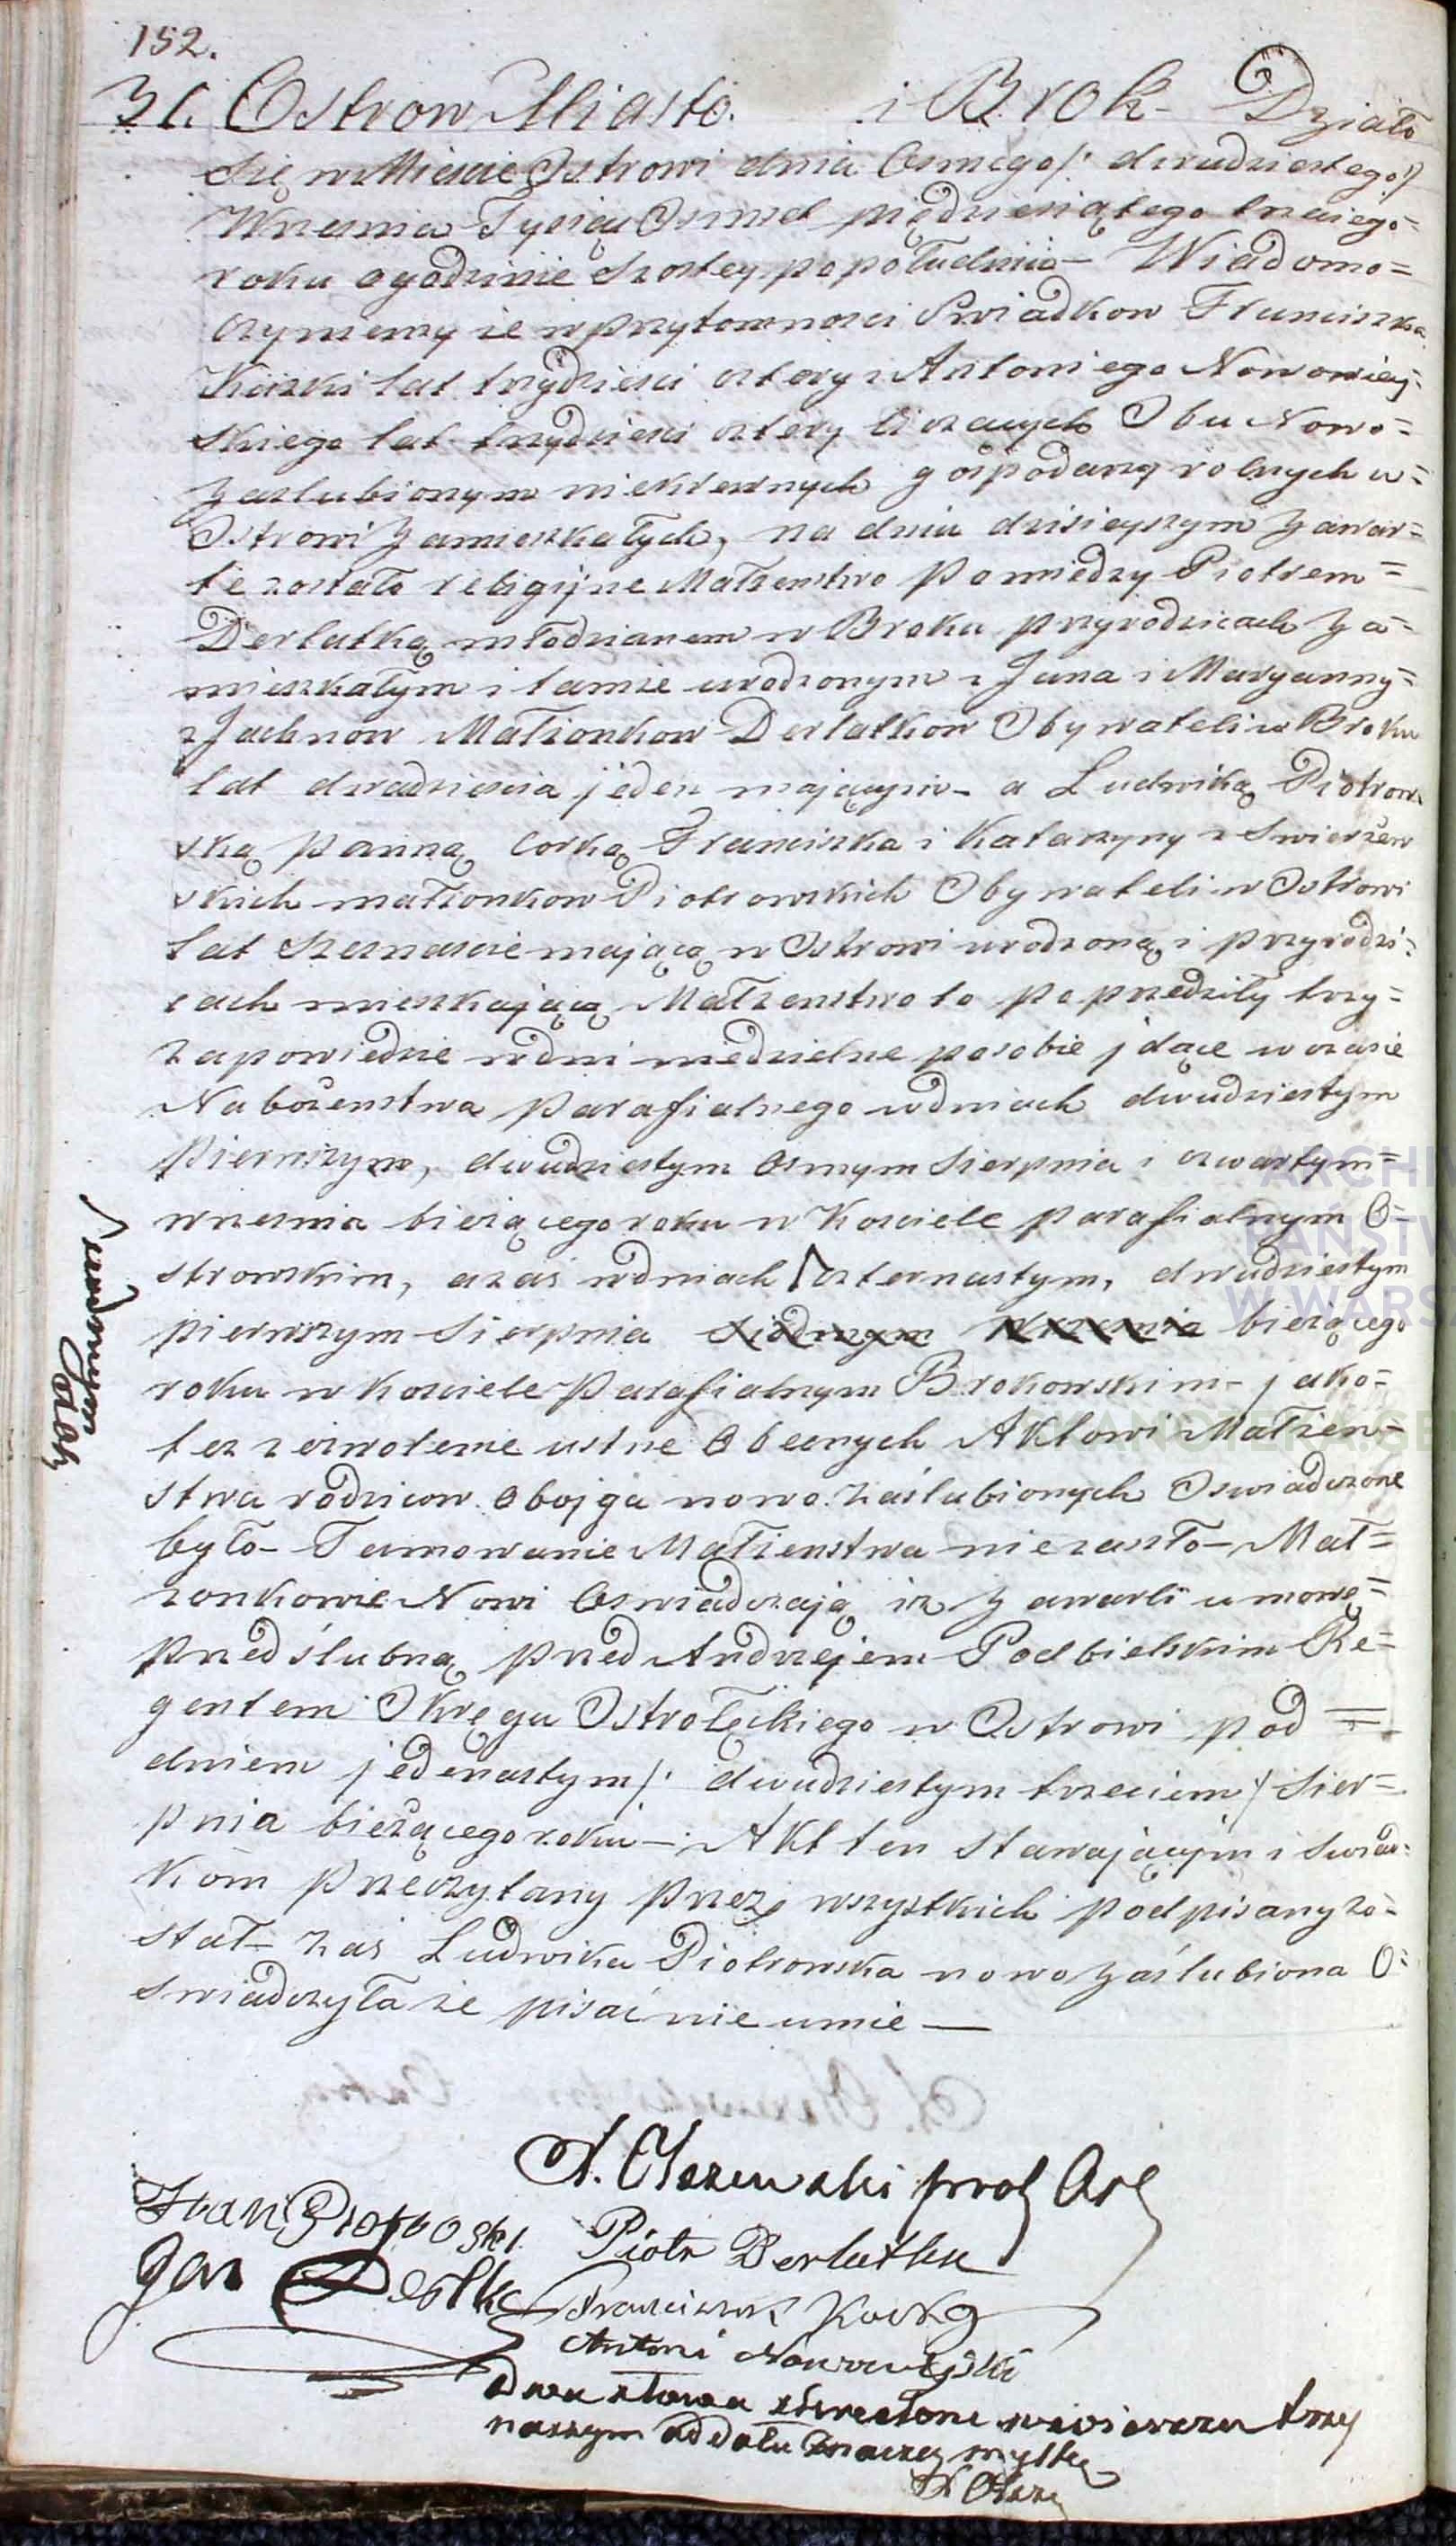 152.
31. Ostrow Miasto. i Brok - Działo
się w Mieście Ostrowi dnia Osmego /: dwudziestego /
Wrzesnia Tysiąc Osmset pięędziesiątego trzeciego =
roku o godzinie Szostey popołudniu - Wiadomo =
czyniemy ze w przytomnosci Swiadkow Franciszka
lat trzydziesci cztery i Antoniego Nowowiey =
skiego lat trzydziesci cztery liczących Obu Nowo =
zaslubionym niekrewnych gospodarzy rolnych w =
Ostrowi zamieszkałych, na dniu dzisieyszym zawar =
te zostało religijne Małzenstwo pomiedzy Piotrem =
Derlatką młodzianem w Broku przyrodzicach za =
mieszkałym i tamze urodzonym z Jana i Maryanny =
z Jachnow Małzonkow Derlatkow Obywateli w Broku
lat dwadziescia jeden mającym - a Ludwiką Piotrow
ską panną corką Franciszka i Katarzyny z Swierzew
skich małzonkow Piotrowskich Obywateli w Ostrowi
lat Szesnascie mającą w Ostrowi urodzoną i przyrodzi =
cach mieszkającą Małzenstwo to poprzedziły trzy =
zapowiedzie w dni niedzielne po sobie jdące w czasie
Nabożenstwa parafialnego w dniach dwudziestym
pierwszym, dwudziestym osmym Sierpnia i czwartym =
wrzesnia bieżącego roku w Kosciele parafialnym O =
strowskim, a zaś w dniach √ czternastym, dwudziestym
pierwszym Sierpnia siodmym Wrzesnia bieżącego
roku w kosciele parafialnym Brokowskim - jako =
tez zezwolenie ustne Obecnych Aktowi Małzen =
stwa rodzicow Obojga nowo zaślubionych Oswiadczone
było - Tamowanie Małzenstwa nie zaszło - Mał =
zonkowie Nowi Oswiadczają iz zawarli umowę =
przedślubną przed Andrzejem Podbielskim Re =
gentem Okręgu Ostrołęckiego w Ostrowi pod =
dniem jedenastym /: dwudziestym trzeciem / Sier =
pnia bieżącego roku - Akt ten stawającym i swiad =
kom przeczytany przez wszystkich podpisany zo =
stał - zaś Ludwika Piotrowska nowo zaślubiona O =
swiadczyła ze pisać nie umie —
√ siodmym
Piotr Derlatka
Jan
Franciszek
Antoni Nowowiejski
Dwa słowa w wierszu trzy
nastym od dołu znaczą myłkę
ARCHIW
PAŃSTW
W WARS